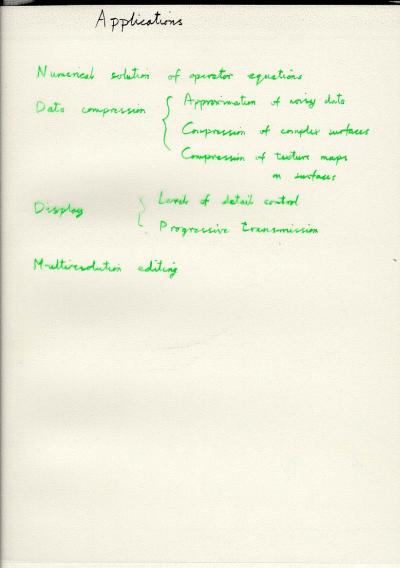 Applications
Numerical solution of operator equations
Data compression { Approximation of noisy data
Compression of complex surfaces
Compression of texture maps
on surfaces
Display { Levels of detail control
Progressive transmission
Multiresolution editing